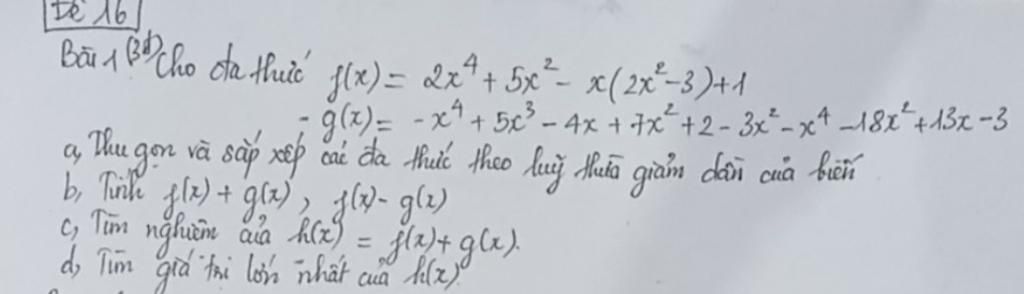 Đề 16
Bài 1 (3đ) Cho đa thức f(x) = 2x⁴ + 5x² - x(2x² - 3) + 1
- g(x) = -x⁴ + 5x³ - 4x + 7x² + 2 - 3x² - x⁴ - 18x² + 13x - 3
a, Thu gọn và sắp xếp các đa thức theo luỹ thừa giảm dần của biến
b, Tính f(x) + g(x), f(x) - g(x)
c, Tìm nghiệm của h(x) = f(x) + g(x).
d, Tìm giá trị lớn nhất của h(x)